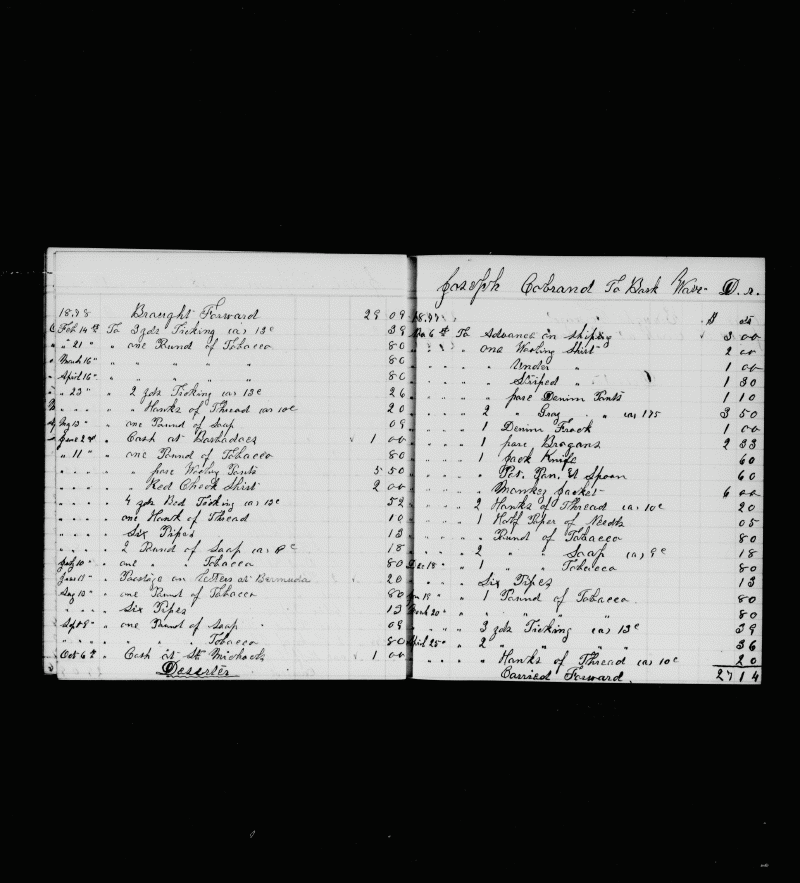 1898 Braught Forward 29 09
Feb 14th To 3 yds Ticking (a) 13c 39
" 21 " " one Pound of Tobacco 80
March 16 " " " " " " 80
April 16 " " " " " " 80
" 23 " " 2 yds Ticking (a) 13c 26
" " " " " Hanks of Thread (a) 10c 20
" one Pound of Soap 09
June 2nd " Cash at Barbadoes 1 00
" 11 " " one Pound of Tobacco 80
" " " " " pare Wooling Pants 5 50
" " " " " Red Check Shirt 2 00
" " " " 4 yds Bed Ticking (a) 13c 52
" " " " one Hank of Thread 10
" " " " Six Pipes 13
" " " " 2 Pound of Soap (a) 9c 18
July 10 " " one " " Tobacco 80
" Postage on Letters at Bermuda 20
Aug 13 " " one Pound of Tobacco 80
" " " " Six Pipes 13
Sept 8 " " one Pound of Soap 09
" " " " " " " Tobacco 80
Oct 6th " Cash at St. Michaels 1 00
Desserter
Joseph Cobrand To Bark Wave Dr.
1897 " " $
6th To Advance on Shiping 3 00
" " " " one Wooling Shirt 2 00
" " " " " Under " 1 00
" " " " " Striped " 1 30
" " " " " pare Denim Pants 1 10
" " " " 2 " Gray " " (a) 175 3 50
" " " " 1 Denim Frock 1 00
" " " " 1 pare Brogans 2 33
" " " " 1 Jack Knife 60
" " " " " Pot, Pan, & Spoon 60
" " " " " Monkey Jacket 6 00
" " " " 2 Hanks of Thread (a) 10c 20
" " " " 1 Half Paper of Needls 05
" " " " " Pound of Tobacco 80
" " " " 2 " " Soap (a) 9c 18
Dec 18 " " 1 " " Tobacco 80
" " " " Six Pipes 13
Jan 18 " " 1 Pound of Tobacco 80
March 20 " " " " " " 80
" " " " 3 yds Ticking (a) 13c 39
April 25 " " 2 " " " " 36
" " " " " Hanks of Thread (a) 10c 20
Carried Forward 27 14